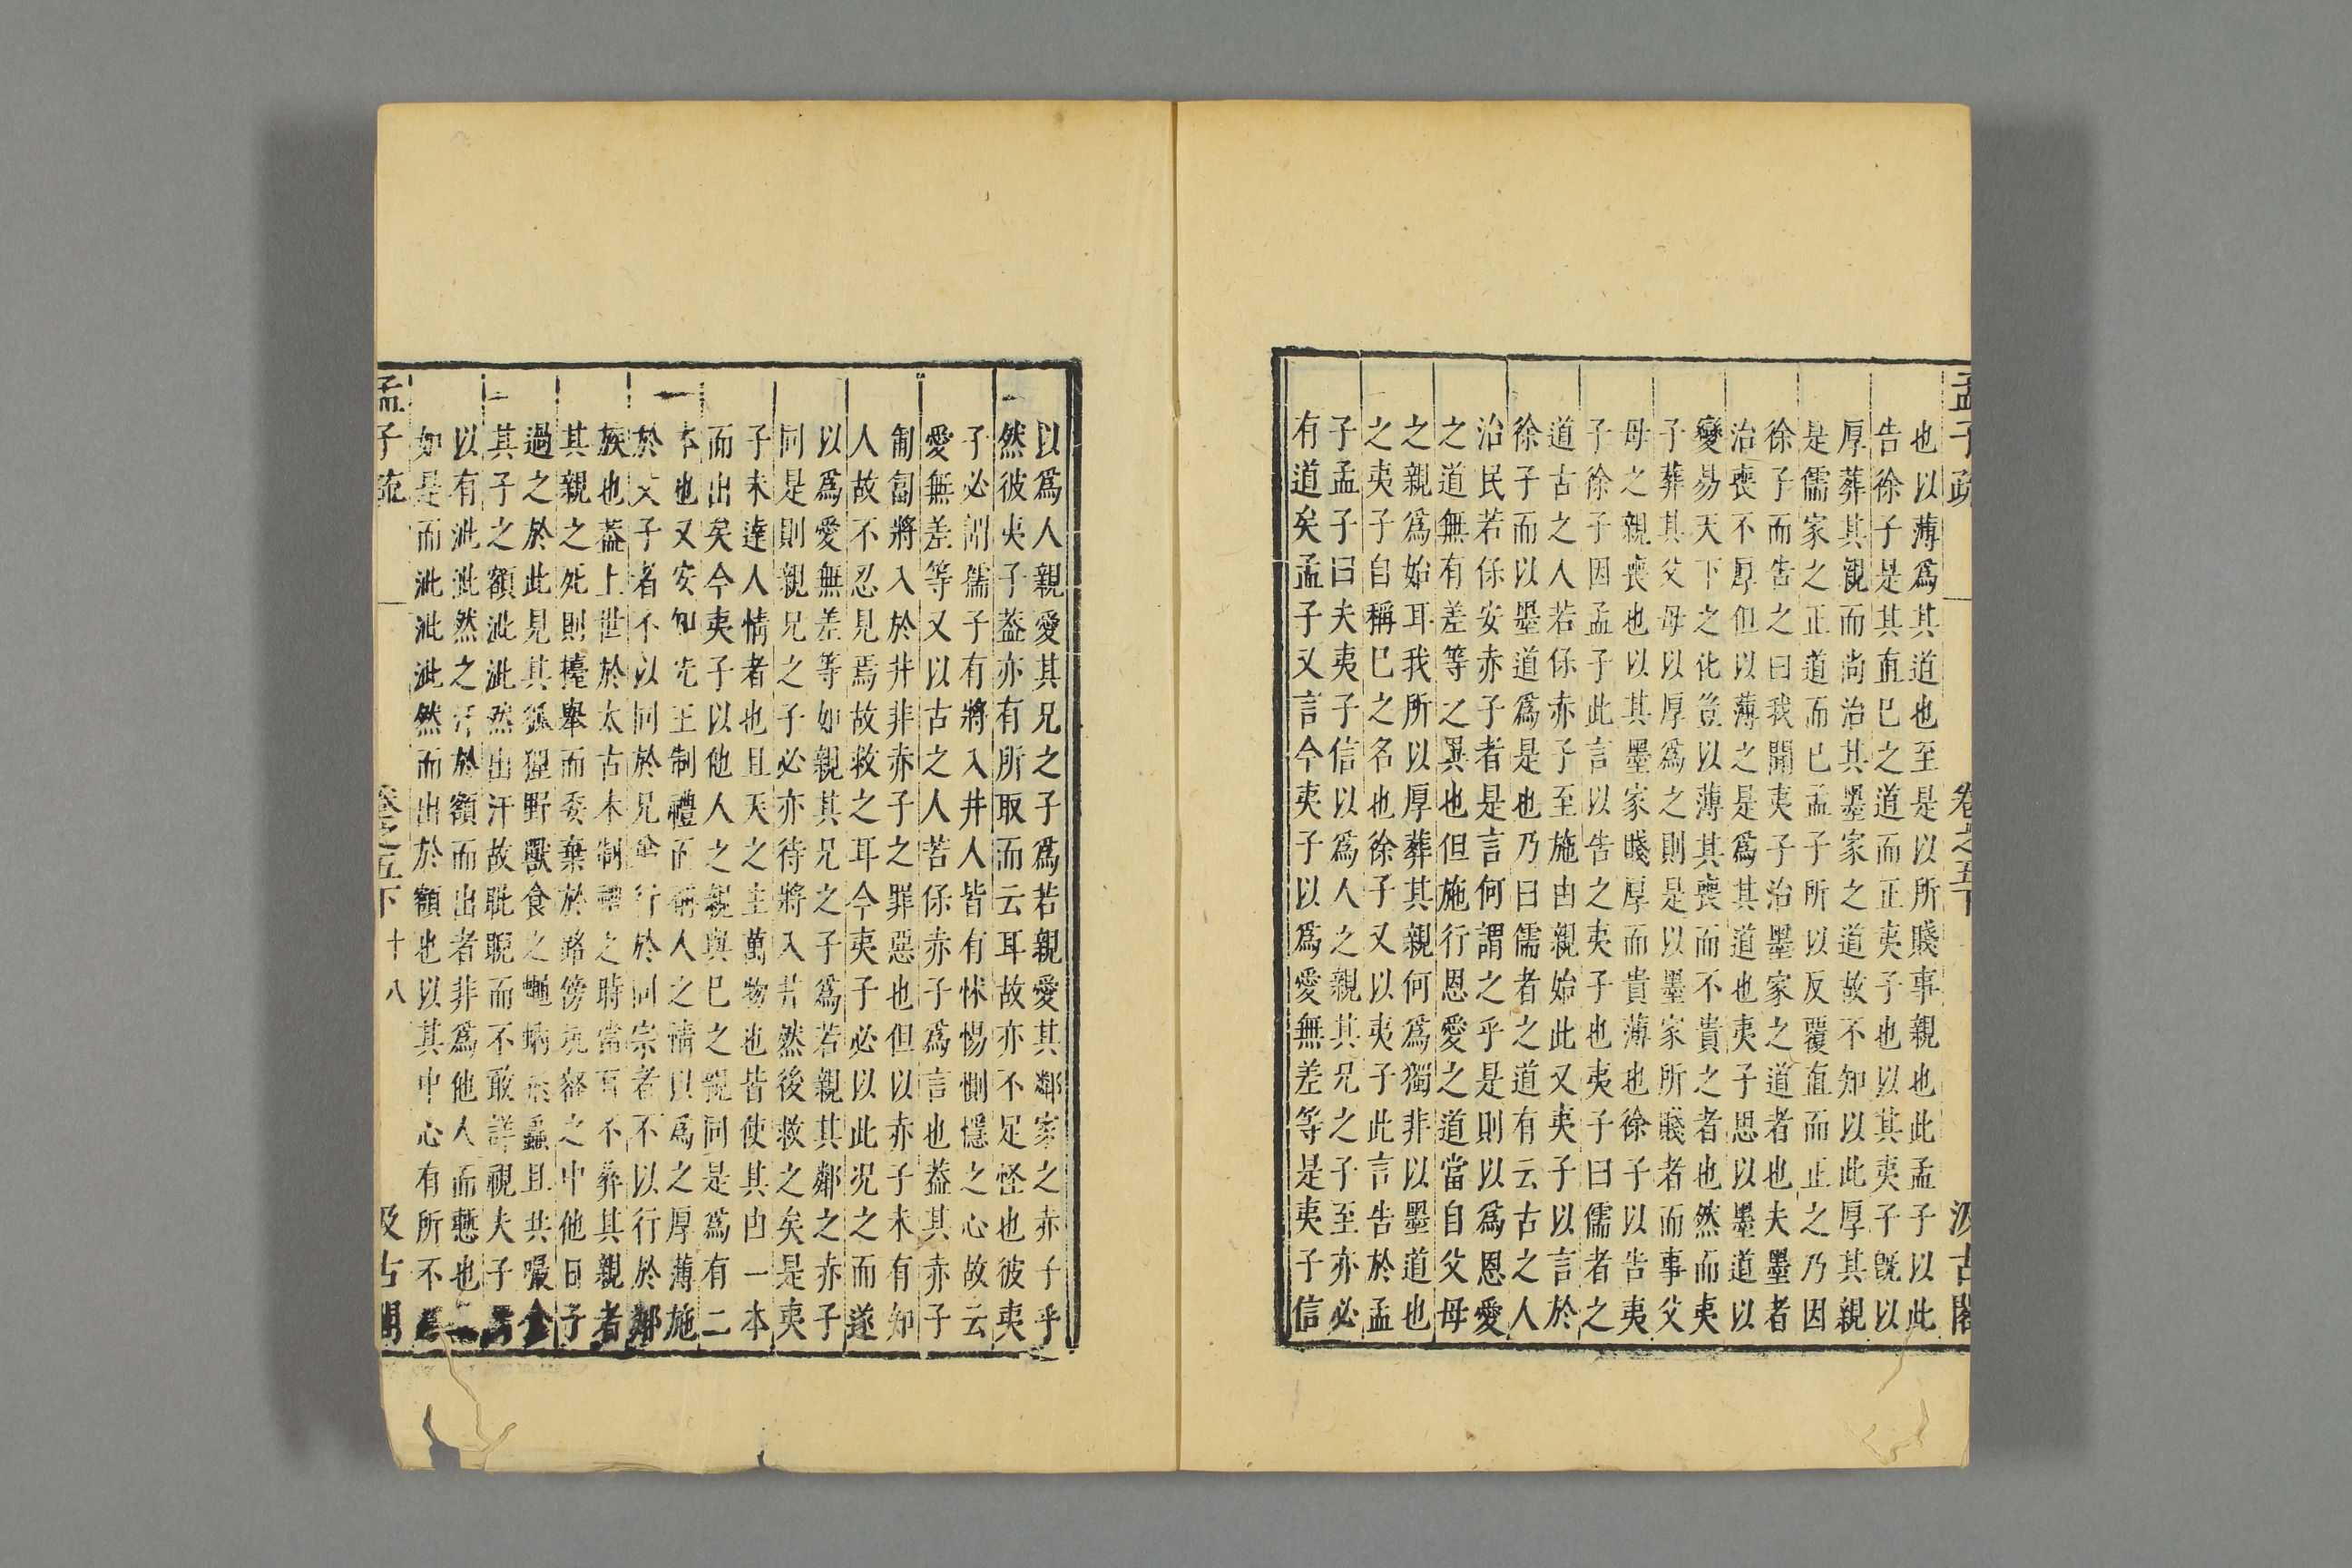 孟子疏 卷之五下 汲古閣
也以薄爲其道也至是以所賤事親也此孟子以此
告徐子是其直巳之道而正夷子也以其夷子旣以
厚葬其親而尚治其墨家之道故不知以此厚其親
是儒家之正道而巳孟子所以反覆直而正之乃因
徐子而告之曰我聞夷子治墨家之道者也夫墨者
治喪不厚但以薄之是爲其道也夷子思以墨道以
變易天下之化豈以薄其喪而不貴之者也然而夷
子葬其父母以厚爲之則是以墨家所賤者而事父
母之親喪也以其墨家賤厚而貴薄也徐子以告夷
子徐子因孟子此言以告之夷子也夷子曰儒者之
道古之人若保赤子至施由親始此又夷子以言於
徐子而以墨道爲是也乃曰儒者之道有云古之人
治民若保安赤子者是言何謂之乎是則以爲恩愛
之道無有差等之異也但施行恩愛之道當自父母
之親爲始耳我所以厚葬其親何爲獨非以墨道也
之夷子自稱巳之名也徐子又以夷子此言告於孟
子孟子曰夫夷子信以爲人之親其兄之子至亦必
有道矣孟子又言今夷子以爲愛無差等是夷子信
以爲人親愛其兄之子爲若親愛其鄰家之赤子乎
然彼夷子蓋亦有所取而云耳故亦不足怪也彼夷
子必謂孺子有將入井人皆有怵惕惻隱之心故云
愛無差等又以古之人若保赤子爲言也蓋其赤子
匍匐將入於井非赤子之罪惡也但以赤子未有知
人故不忍見焉故救之耳今夷子必以此况之而遂
以爲愛無差等如親其兄之子爲若親其鄰之赤子
同是則親兄之子必亦待將入井然後救之矣是夷
子未達人情者也且天之主萬物也皆使其由一本
而出矣今夷子以他人之親與巳之親同是爲有二
本也又安知先王制禮而稱人之情以爲之厚薄施
於父子者不以同於兄弟行於同宗者不以行於鄰
族也蓋上世於太古未制禮之時常有不葬其親者
其親之死則擡舉而委棄於路傍坑壑之中他日子
過之於此見其狐狸野獸食之蠅蚋飛蟲且共嘬食
其子之額泚泚然出汗故眦睨而不敢詳視夫子
以有泚泚然之汗於額而出者非爲他人而慙也
如是而泚泚泚然而出於額也以其中心有所不
孟子疏 卷之五下 十八 汲古閣